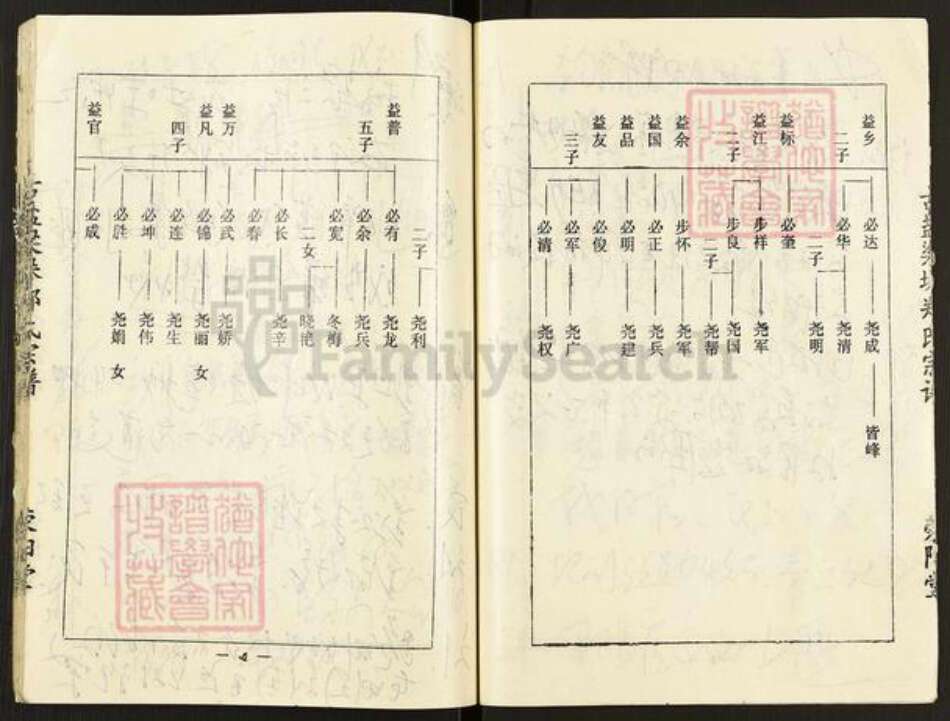 益乡
二子
益标
益江
二子
益余
益国
益品
益友
三子
必达
必华
二子
必奎
步样
步良
二子
步怀
必正
必明
必俊
必军
必清
尧成
尧清
尧明
尧军
尧国
尧帮
尧军
尧兵
尧建
尧广
尧权
皆峰
益普
五子
益万
益凡
四子
益官
二子
必有
必余
必宽
二女
必长
必春
必武
必锦
必连
必坤
必胜
必成
尧利
尧龙
尧兵
冬梅
晓艳
尧辛
尧娇
尧丽 女
尧生
尧伟
尧娟 女
FamilySearch